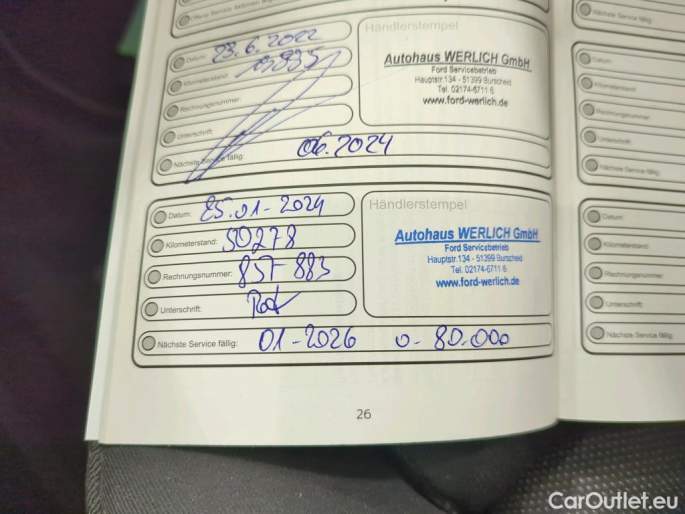 Datum: 23.6.2022
Händlerstempel
Kilometerstand:
Autohaus WERLICH GmbH
Ford Servicebetrieb
Hauptstr.134 - 51399 Burscheid
Tel. 02174-6711 6
www.ford-werlich.de
Rechnungsnummer:
Unterschrift:
Nächste Service fällig: 06.2024
Datum: 25.01-2024
Händlerstempel
Kilometerstand: 50278
Autohaus WERLICH GmbH
Ford Servicebetrieb
Hauptstr.134 - 51399 Burscheid
Tel. 02174-6711 6
www.ford-werlich.de
Rechnungsnummer: 857 883
Unterschrift:
Nächste Service fällig: 01-2026 o- 80.000
26
Nächste Service fällig:
Datum:
Kilometerstand:
Rechnungsnummer:
Unterschrift:
Nächste Service fällig:
Datum:
Kilometerstand:
Rechnungsnummer:
Unterschrift:
Nächste Service fällig:
CarOutlet.eu